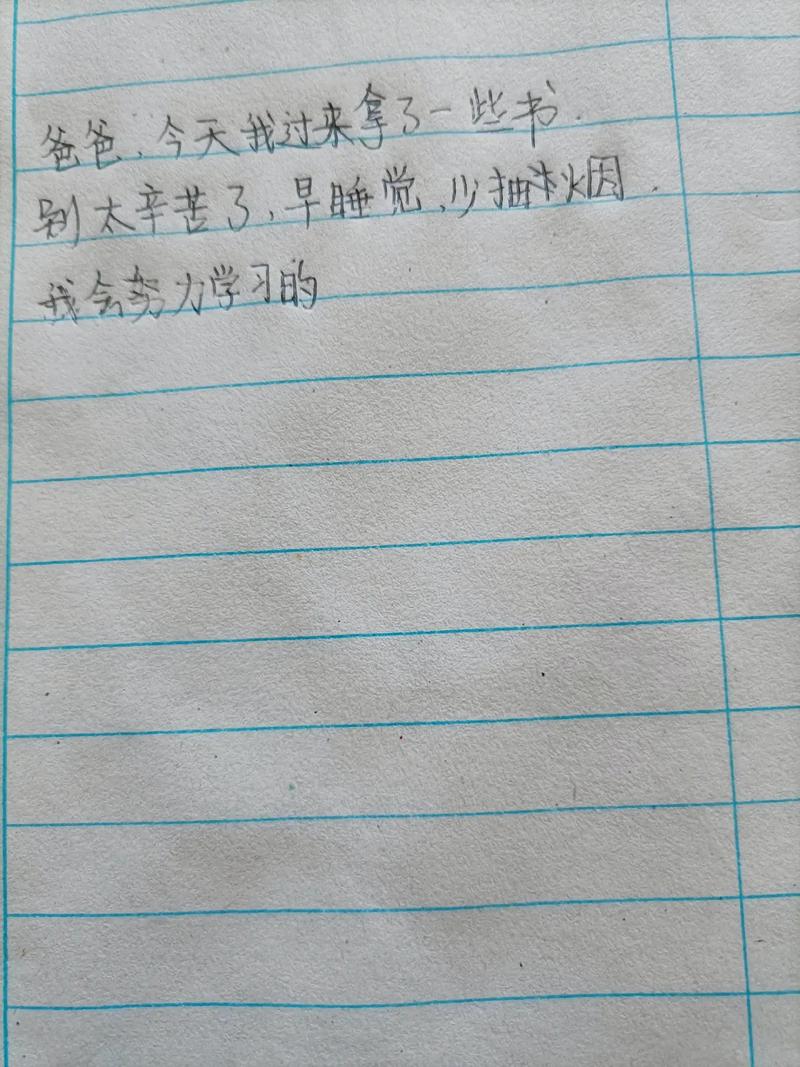 爸爸、今天我过来拿了一些书.
别太辛苦了,早睡觉,少抽烟.
我会努力学习的